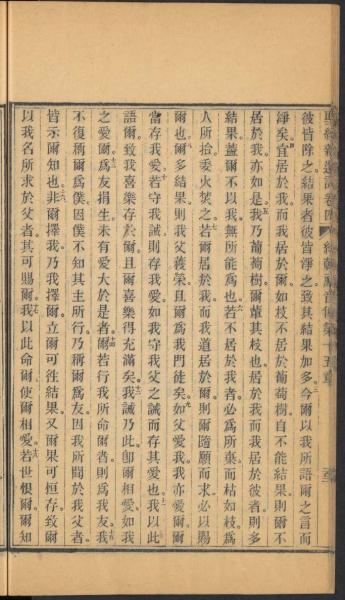 彼皆除之結果者彼皆淨之致其結果加多今爾以我所語爾之言而
淨矣宜居於我而我居於爾如枝不居於葡萄樹自不能結果則爾不
居於我亦如是我乃葡萄樹爾輩其枝也居於我而我居於彼者則多
結果蓋爾不以我無所能爲也若不居於我者必爲所棄而枯如枝爲
人所拾委火焚之若爾居於我而我道居於爾則爾隨願而求必以賜
爾也爾多結果則我父獲榮且爾爲我門徒矣如父愛我我亦愛爾爾
當存我愛若守我誡則存我愛如我守我父之誡而存其愛也我以此
語爾致我喜樂存於爾且爾喜樂得充滿矣我誡乃此卽爾相愛如我
之愛爾爲友捐生未有愛大於是者爾若行我所命爾者則爲我友我
不復稱爾爲僕因僕不知其主所行乃稱爾爲友因我所聞於我父者
皆示爾知也非爾擇我乃我擇爾立爾可徃結果又爾果可恒存致爾
以我名所求於父者其可賜爾我以此命爾使爾相愛若世恨爾爾知